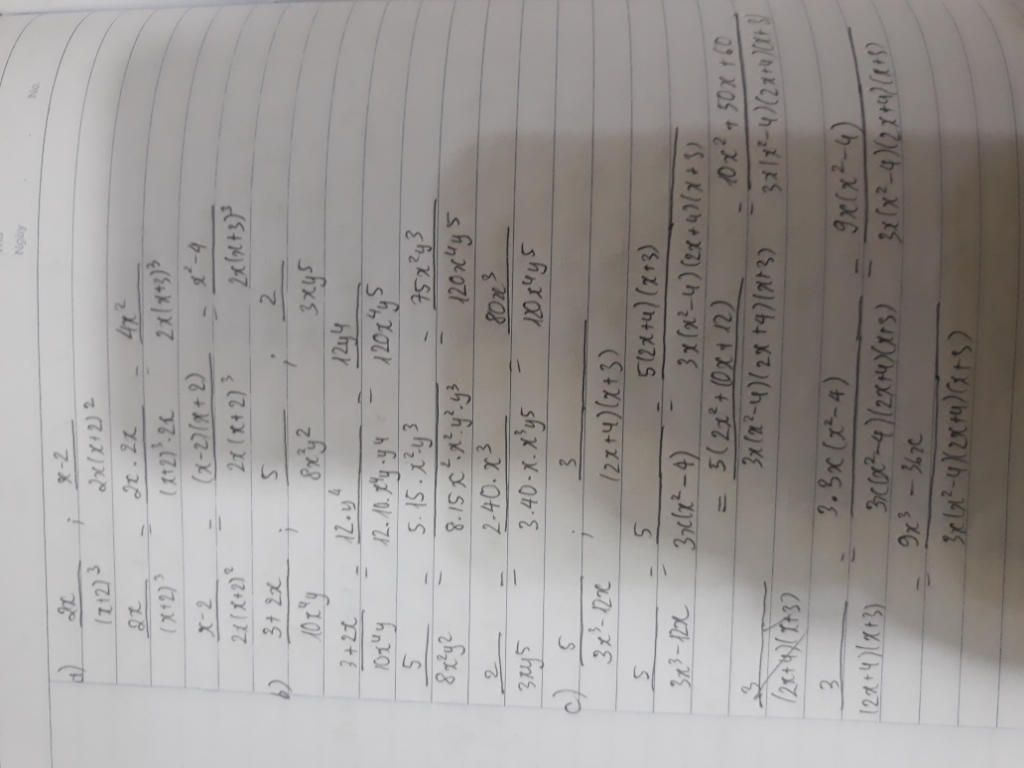 No.
Ngày
a) 2x/(x+2)³ ; x-2/2x(x+2)²
2x/(x+2)³ = 2x.2x/(x+2)³.2x = 4x²/2x(x+3)³
x-2/2x(x+2)² = (x-2)(x+2)/2x(x+2)³ = x²-4/2x(x+3)³
b) 3+2x/10x⁴y ; 5/8x²y² ; 2/3xy5
3+2x/10x⁴y = 12.y⁴/12.10.x⁴y y⁴ = 12y⁴/120x⁴y5
5/8x²y² = 5.15.x²y³/8.15x².x².y².y³ = 75x²y³/120x⁴y5
2/3xy5 = 2.40.x³/3.40.x.x³y5 = 80x³/120x⁴y5
c) 5/3x³-12x ; 3/(2x+4)(x+3)
5/3x³-12x = 5/3x(x²-4) = 5(2x+4)(x+3)/3x(x²-4)(2x+4)(x+3)
= 5(2x²+10x+12)/3x(x²-4)(2x+4)(x+3) = 10x²+50x+60/3x(x²-4)(2x+4)(x+3)
3/(2x+4)(x+3)
3/(2x+4)(x+3) = 3.3x(x²-4)/3x(x²-4)(2x+4)(x+3) = 9x(x²-4)/3x(x²-4)(2x+4)(x+3)
= 9x³-36x/3x(x²-4)(2x+4)(x+3)